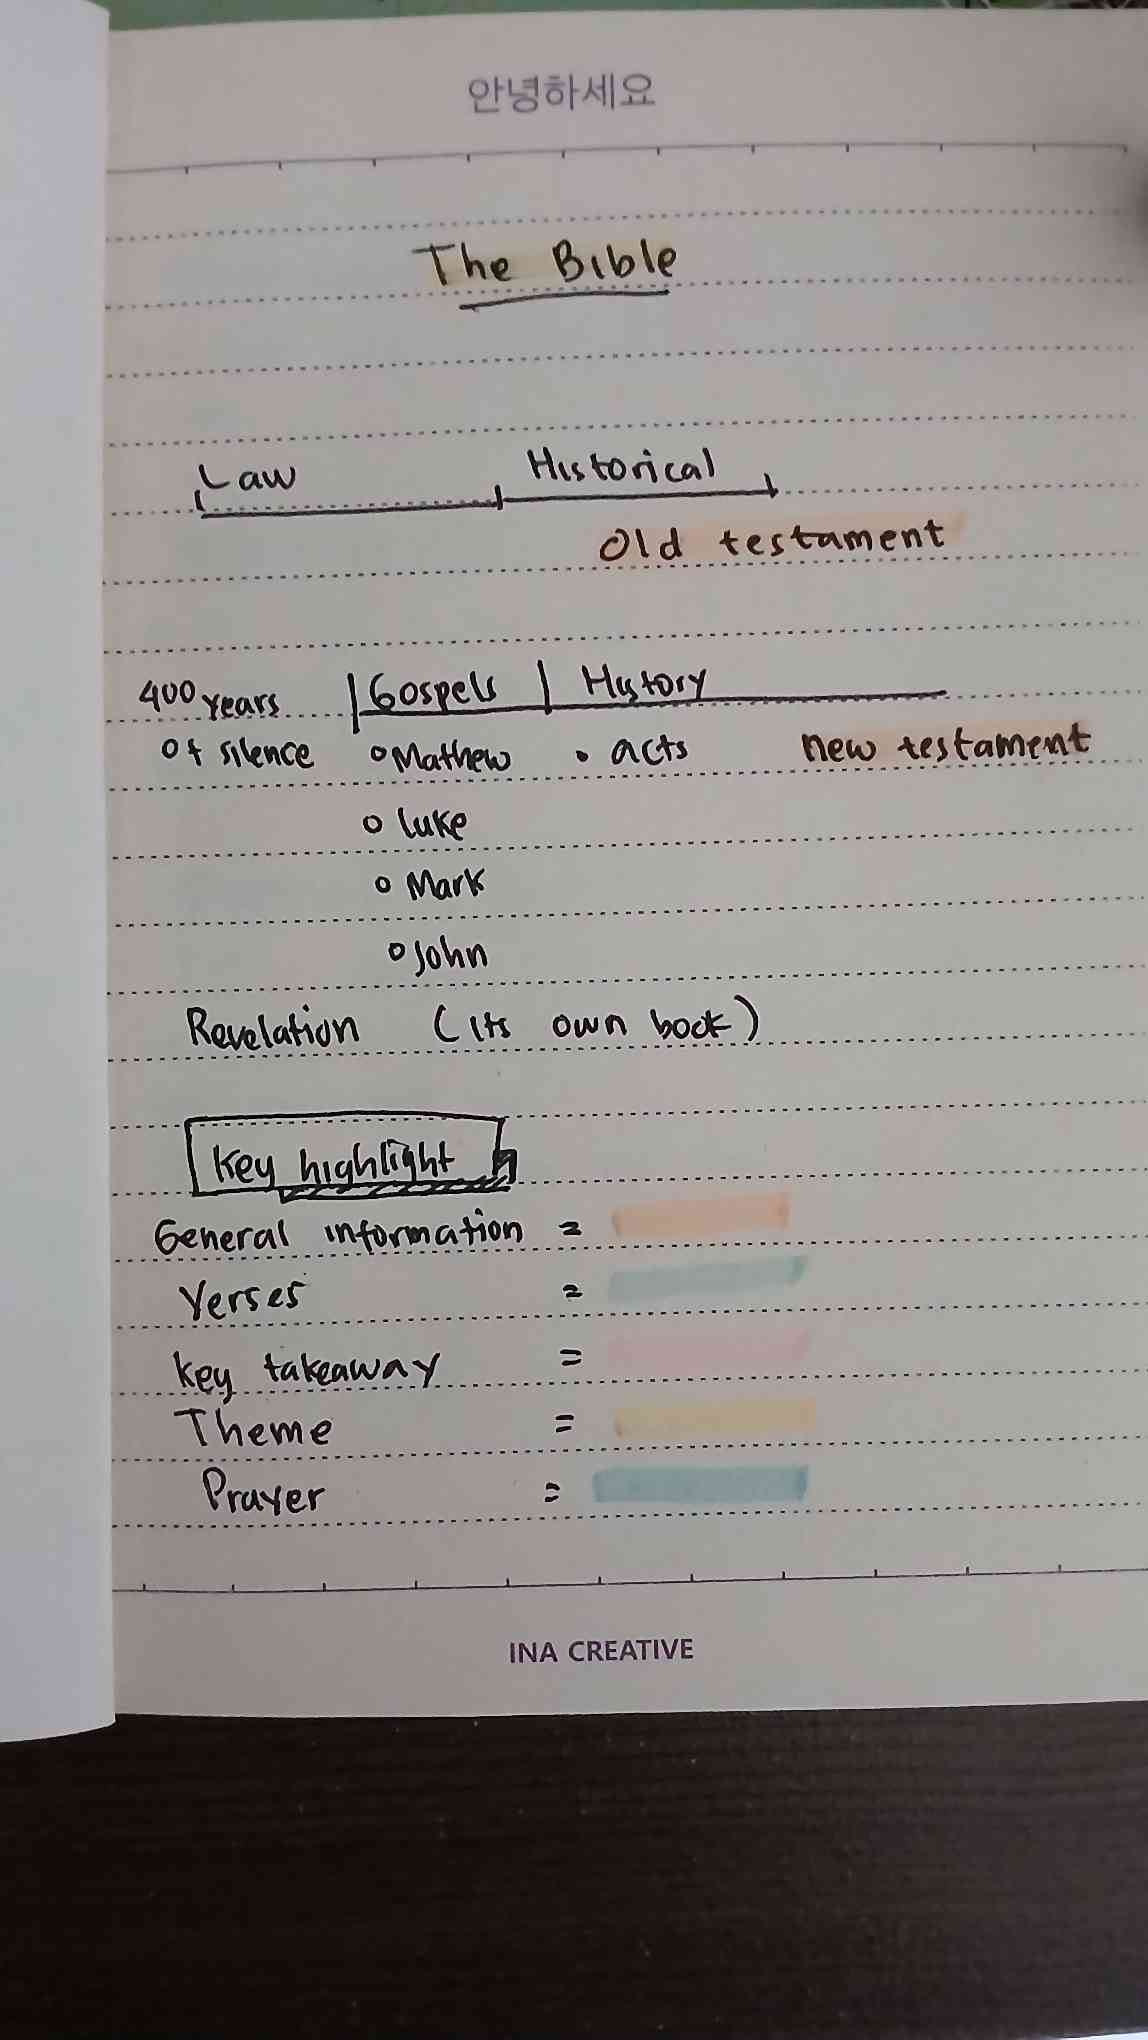 안녕하세요
The Bible
Law Historical
Old testament
400 years Gospels History
Of silence Mathew acts new testament
Luke
Mark
John
Revelation (its own book)
Key highlight
General information =
Verses =
Key takeaway =
Theme =
Prayer =
INA CREATIVE